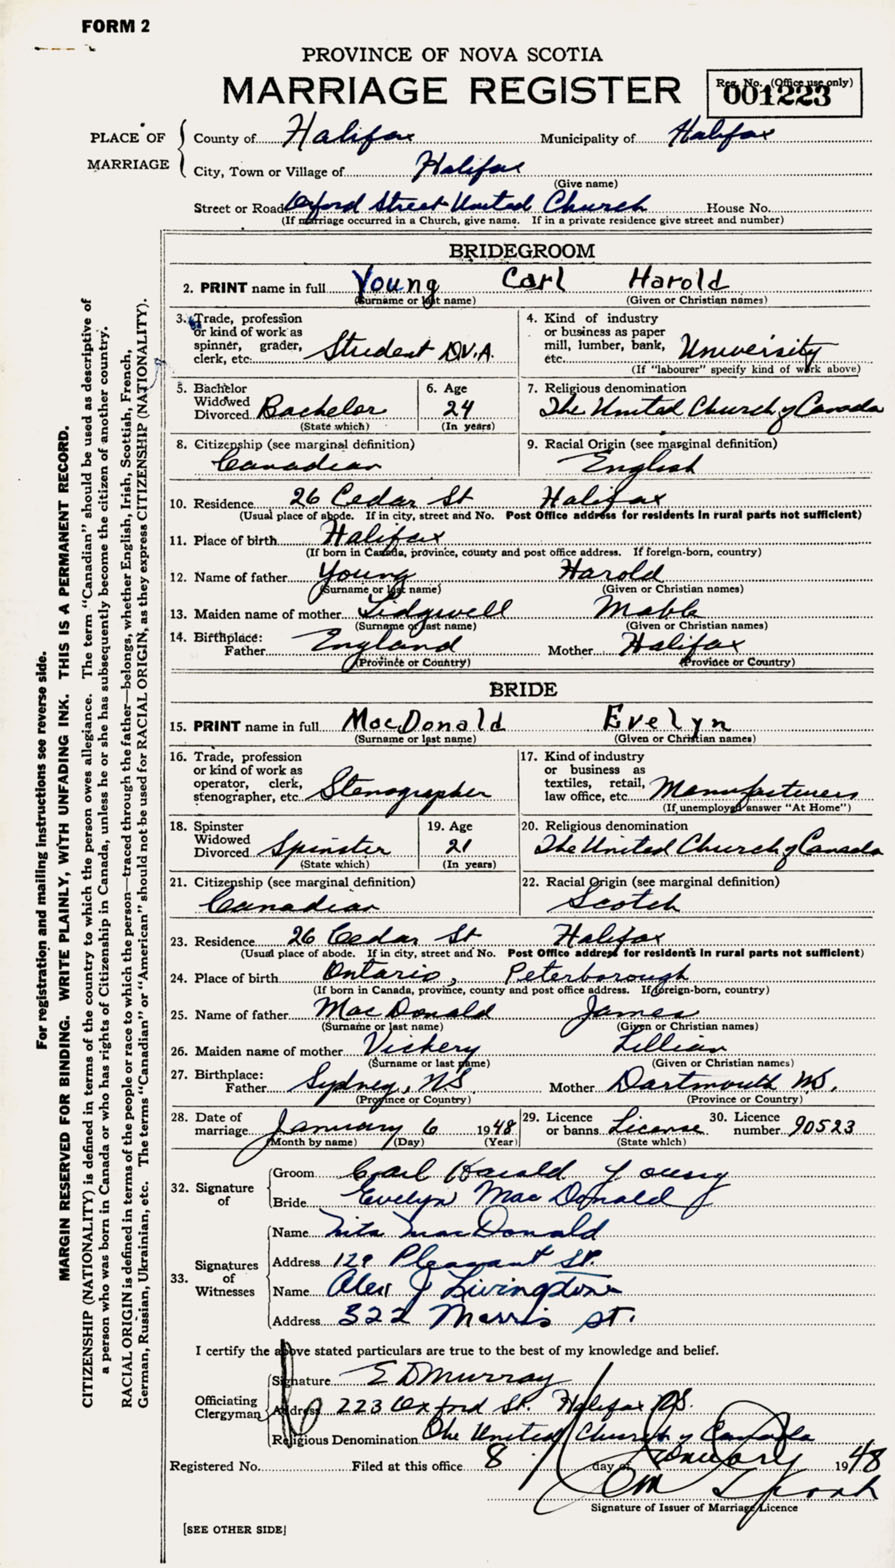 FORM 2
PROVINCE OF NOVA SCOTIA
MARRIAGE REGISTER
Reg. No. (Office use only)
001223
PLACE OF MARRIAGE
County of Halifax Municipality of Halifax
City, Town or Village of Halifax
(Give name)
Street or Road Oxford Street United Church House No.
(If marriage occurred in a Church, give name. If in a private residence give street and number)
BRIDEGROOM
2. PRINT name in full Young Carl Harold
(Surname or last name) (Given or Christian names)
3. Trade, profession or kind of work as spinner, grader, clerk, etc. Student D.V.A.
4. Kind of industry or business as paper mill, lumber, bank, etc. University
(If "labourer" specify kind of work above)
5. Bachelor Widowed Divorced Bachelor
(State which)
6. Age 24
(In years)
7. Religious denomination
The United Church of Canada
8. Citizenship (see marginal definition)
Canadian
9. Racial Origin (see marginal definition)
English
10. Residence 26 Cedar St Halifax
(Usual place of abode. If in city, street and No. Post Office address for residents in rural parts not sufficient)
11. Place of birth Halifax
(If born in Canada, province, county and post office address. If foreign-born, country)
12. Name of father Young Harold
(Surname or last name) (Given or Christian names)
13. Maiden name of mother Lidgwell Mable
(Surname or last name) (Given or Christian names)
14. Birthplace:
Father England Mother Halifax
(Province or Country) (Province or Country)
BRIDE
15. PRINT name in full MacDonald Evelyn
(Surname or last name) (Given or Christian names)
16. Trade, profession or kind of work as operator, clerk, stenographer, etc. Stenographer
17. Kind of industry or business as textiles, retail, law office, etc. Manufacturers
(If unemployed answer "At Home")
18. Spinster Widowed Divorced Spinster
(State which)
19. Age 21
(In years)
20. Religious denomination
The United Church of Canada
21. Citizenship (see marginal definition)
Canadian
22. Racial Origin (see marginal definition)
Scotch
23. Residence 26 Cedar St Halifax
(Usual place of abode. If in city, street and No. Post Office address for residents in rural parts not sufficient)
24. Place of birth Ontario, Peterborough
(If born in Canada, province, county and post office address. If foreign-born, country)
25. Name of father MacDonald James
(Surname or last name) (Given or Christian names)
26. Maiden name of mother Vickery Lillian
(Surname or last name) (Given or Christian names)
27. Birthplace:
Father Sydney, NS Mother Dartmouth N.S.
(Province or Country) (Province or Country)
28. Date of marriage January 6 1948
(Month by name) (Day) (Year)
29. Licence or banns License
(State which)
30. Licence number 90523
32. Signature of
Groom Carl Harold Young
Bride Evelyn MacDonald
33. Signatures of Witnesses
Name Nita MacDonald
Address 129 Pleasant St.
Name Alex J Livingstone
Address 322 Morris St.
I certify the above stated particulars are true to the best of my knowledge and belief.
Officiating Clergyman
Signature E D Murray
Address 223 Oxford St. Halifax N.S.
Religious Denomination The United Church of Canada
Registered No. Filed at this office 8 day of January 1948
Signature of Issuer of Marriage Licence
[SEE OTHER SIDE]
For registration and mailing instructions see reverse side.
MARGIN RESERVED FOR BINDING. WRITE PLAINLY, WITH UNFADING INK. THIS IS A PERMANENT RECORD.
CITIZENSHIP (NATIONALITY) is defined in terms of the country to which the person owes allegiance. The term "Canadian" should be used as descriptive of
a person who was born in Canada or who has rights of Citizenship in Canada, unless he or she has subsequently become the citizen of another country.
RACIAL ORIGIN is defined in terms of the people or race to which the person—traced through the father—belongs, whether English, Irish, Scottish, French,
German, Russian, Ukrainian, etc. The terms "Canadian" or "American" should not be used for RACIAL ORIGIN, as they express CITIZENSHIP (NATIONALITY).